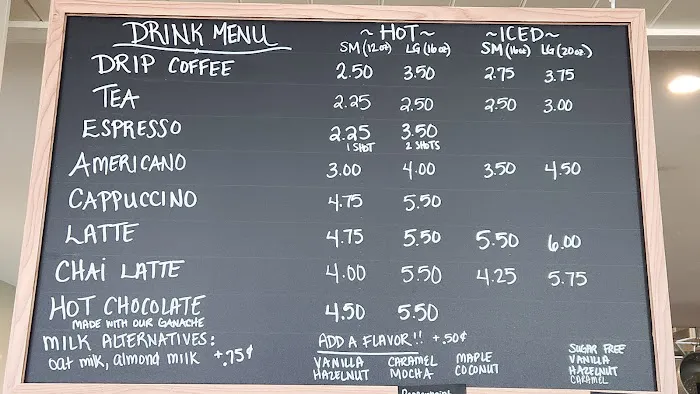 DRINK MENU ~HOT~ ~ICED~
SM (12oz) LG (16oz) SM (16oz) LG (20oz.)
DRIP COFFEE 2.50 3.50 2.75 3.75
TEA 2.25 2.50 2.50 3.00
ESPRESSO 2.25 3.50
1 SHOT 2 SHOTS
AMERICANO 3.00 4.00 3.50 4.50
CAPPUCCINO 4.75 5.50
LATTE 4.75 5.50 5.50 6.00
CHAI LATTE 4.00 5.50 4.25 5.75
HOT CHOCOLATE 4.50 5.50
MADE WITH OUR GANACHE
MILK ALTERNATIVES:
oat milk, almond milk +.75¢
ADD A FLAVOR!! +.50¢
VANILLA CARAMEL MAPLE
HAZELNUT MOCHA COCONUT
SUGAR FREE
VANILLA
HAZELNUT
CARAMEL